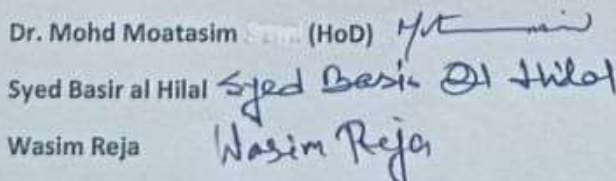 Dr. Mohd Moatasim (HoD)
Syed Basir al Hilal Syed Basir Al Hilal
Wasim Reja Wasim Reja